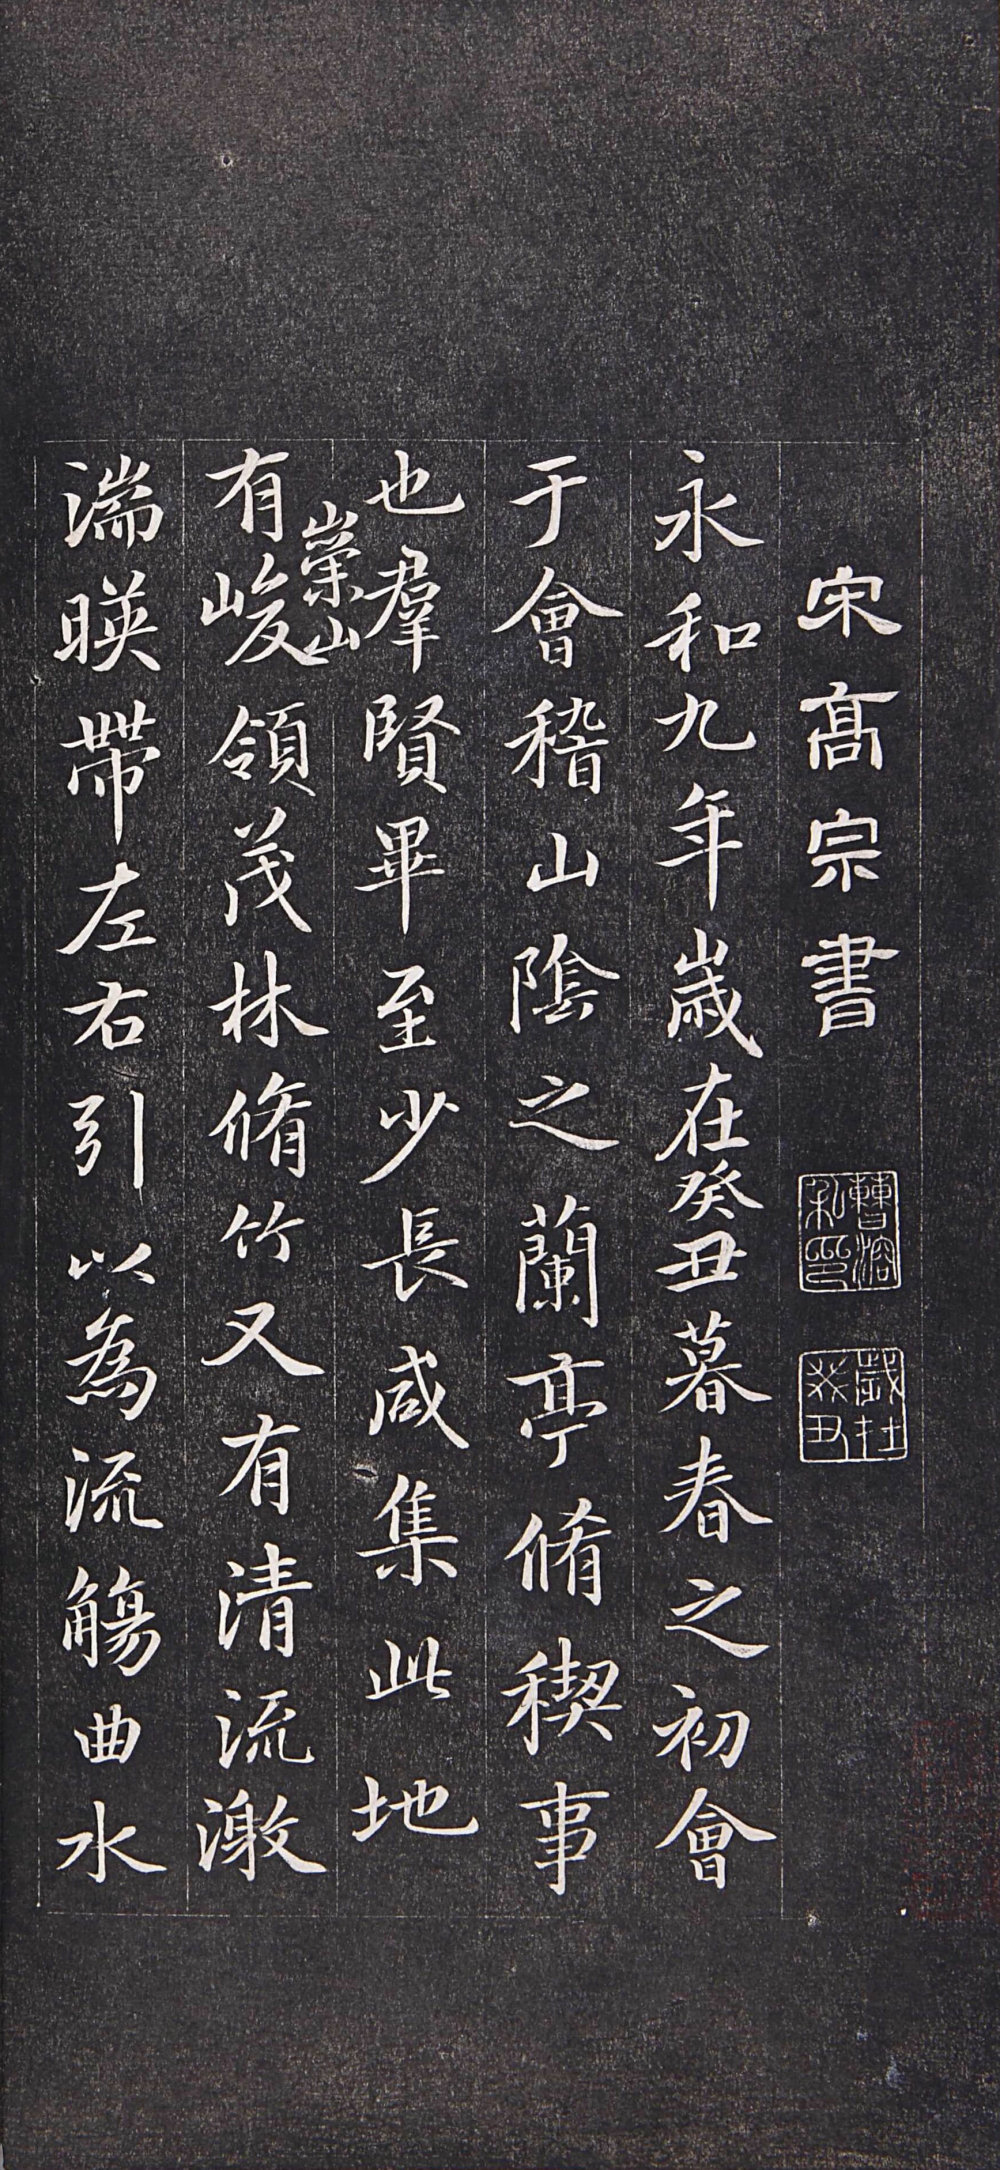 宋高宗書
曹溶私印
歲在癸丑
永和九年歲在癸丑暮春之初會
于會稽山陰之蘭亭脩稧事
也羣賢畢至少長咸集此地
崇山
有峻領茂林脩竹又有清流激
湍暎帶左右引以為流觴曲水